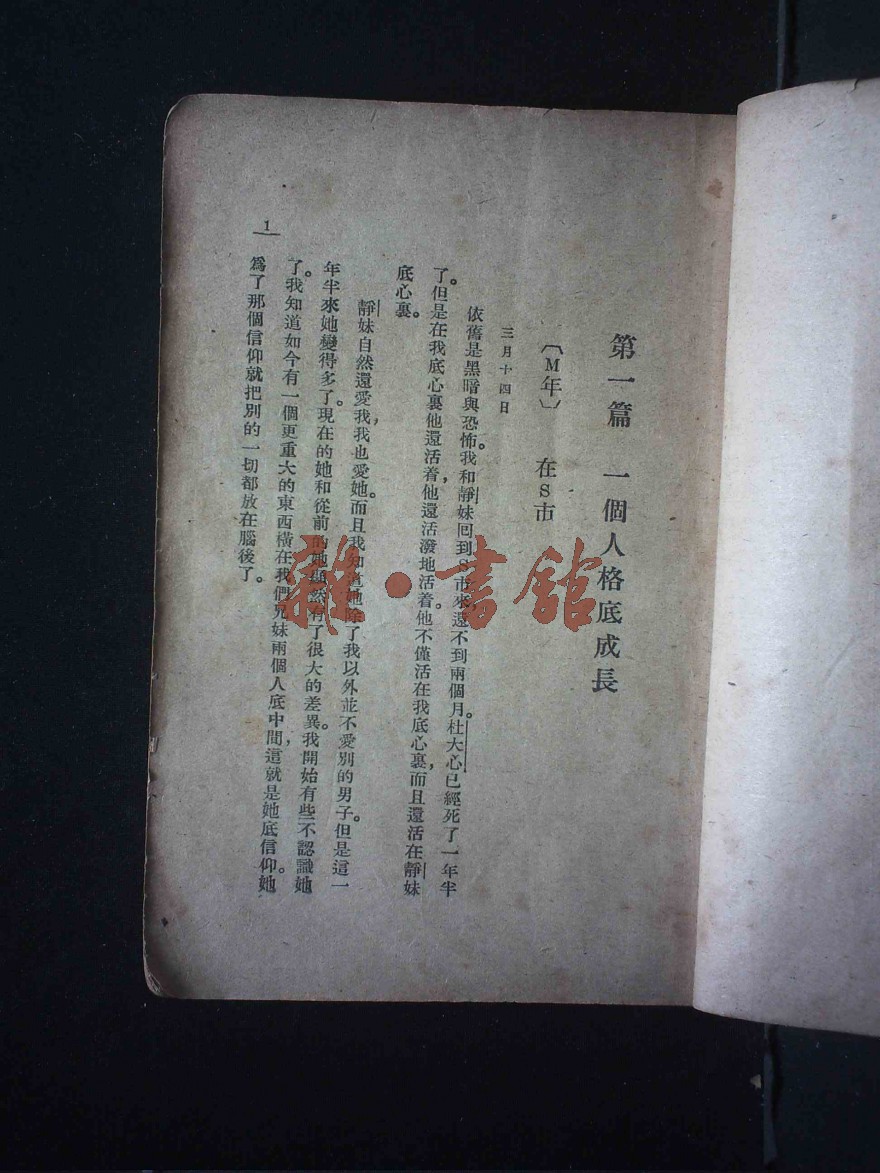 第一篇　一個人格底成長
〔M年〕　在S市
三月十四日
依舊是黑暗與恐怖。我和靜妹回到S市來還不到兩個月。杜大心已經死了一年半
了。但是在我底心裏他還活着，他還活潑地活着。他不僅活在我底心裏，而且還活在靜妹
底心裏。
靜妹自然還愛我，我也愛她。而且我知道她除了我以外並不愛別的男子。但是這一
年半來她變得多了。現在的她和從前的她顯然有了很大的差異。我開始有些不認識她
了。我知道如今有一個更重大的東西橫在我們兄妹兩個人底中間，這就是她底信仰。她
爲了那個信仰就把別的一切都放在腦後了。
1
雜·書館